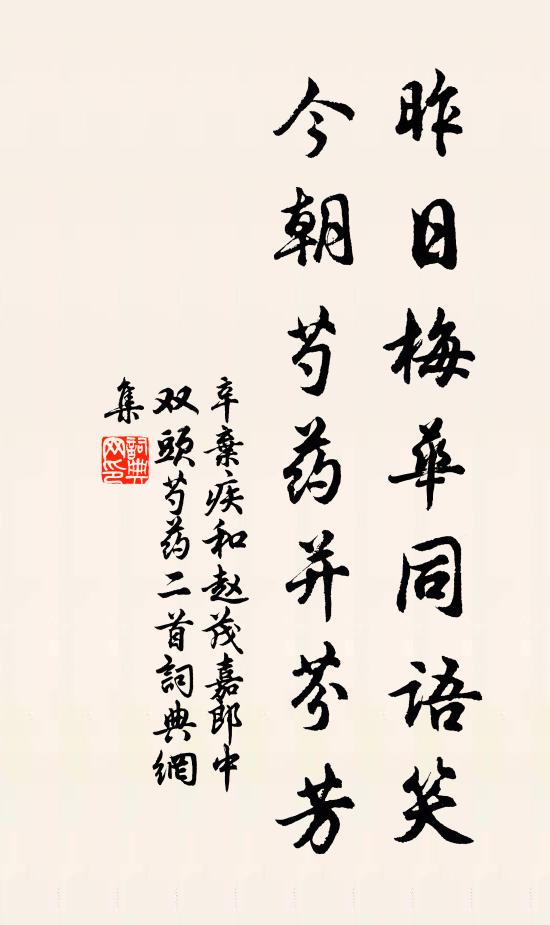 昨日梅华同语笑
今朝芍药并芬芳
辛棄疾和赵茂嘉郎中
双頭芍药二首詞典網
集
詞典
网印